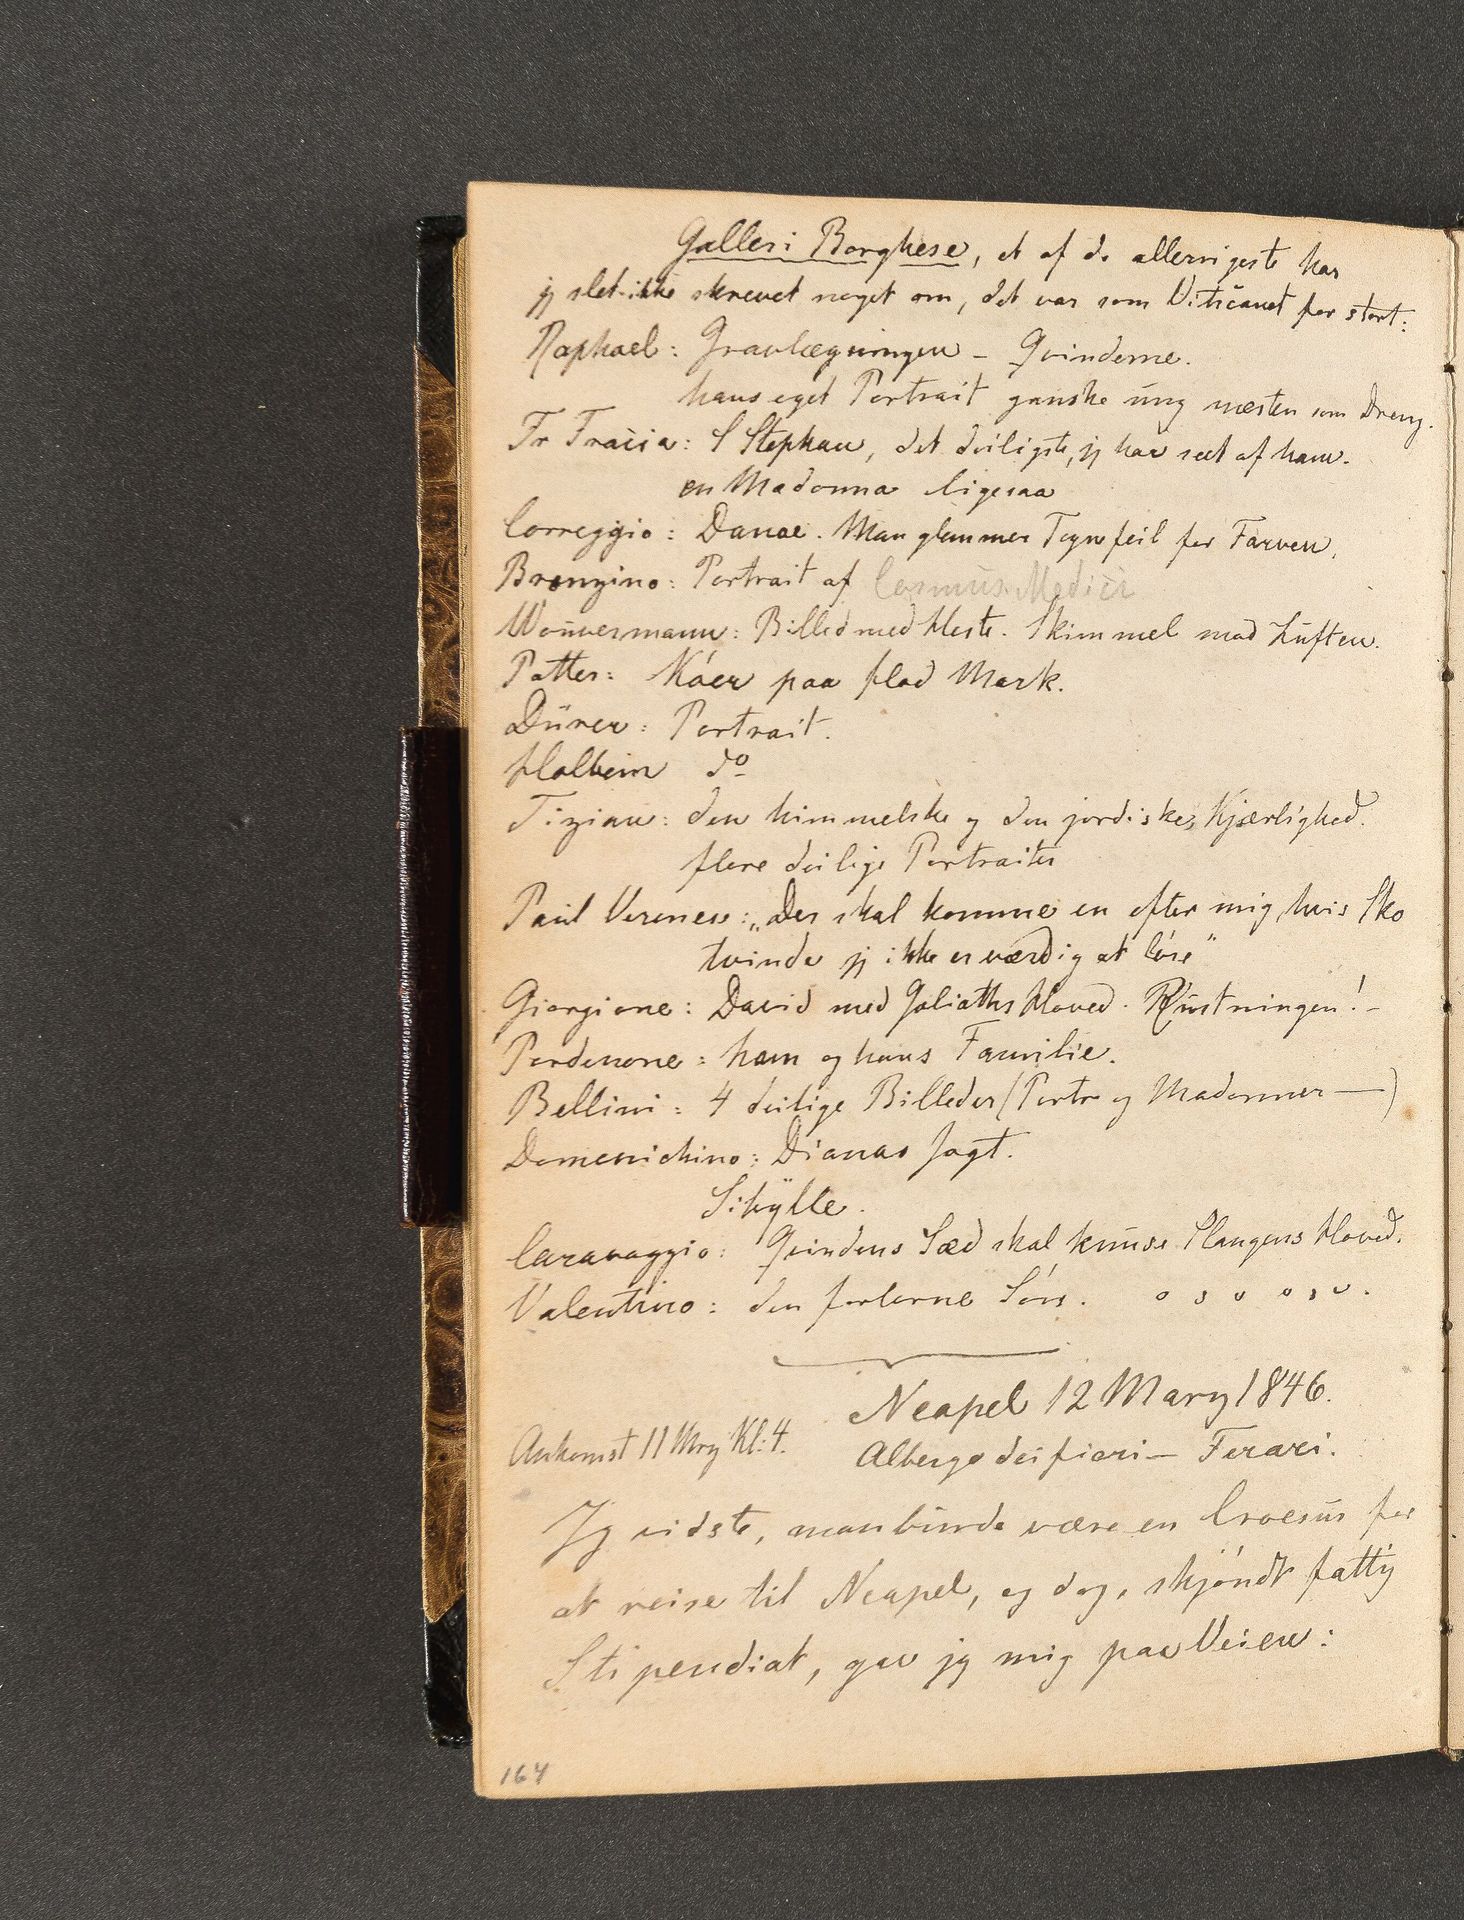 Galleri Borghese, et af de allerrigeste har
jeg slet ikke skrevet noget om, det var som Vaticanet for stort:
Raphael: Gravlægningen – Qvinderne.
hans eget Portrait ganske ung næsten som Dreng.
Fr Francia: S Stephan, det deiligste, jeg har seet af ham.
en Madonna ligesaa
Correggio: Danae. Man glemmer Tegnefeil for Farven.
Bronzino: Portrait af Cosmus Medici
Wouvermann: Billed med Heste. Skimmel mod Luften.
Potter: Køer paa flad Mark.
Dürer: Portrait.
Holbein do
Tizian: den himmelske og den jordiske Kjærlighed.
flere deilige Portraiter
Paul Verones: „Der skal komme en efter mig, hvis Sko
tvinde jeg ikke er værdig at løse"
Giorgione: David med Goliaths Hoved. Rustningen! –
Pordenone: ham og hans Familie.
Bellini: 4 deilige Billeder (Portr og Madonner —)
Domenichino: Dianas Jagt.
Sibÿlle.
Caravaggio: Qvindens Sæd skal knuse Slangens Hoved.
Valentino: den forlorne Søn. o s v o, s, v.
Neapel 12 Marz 1846.
Ankomst 11 Mrz Kl: 4.
Albergo dei fiori – Ferari.
Jeg vidste, man burde være en Croesus for
at reise til Neapel, og dog, skjøndt fattig
Stipendiat, gav jeg mig paa Veien:
164